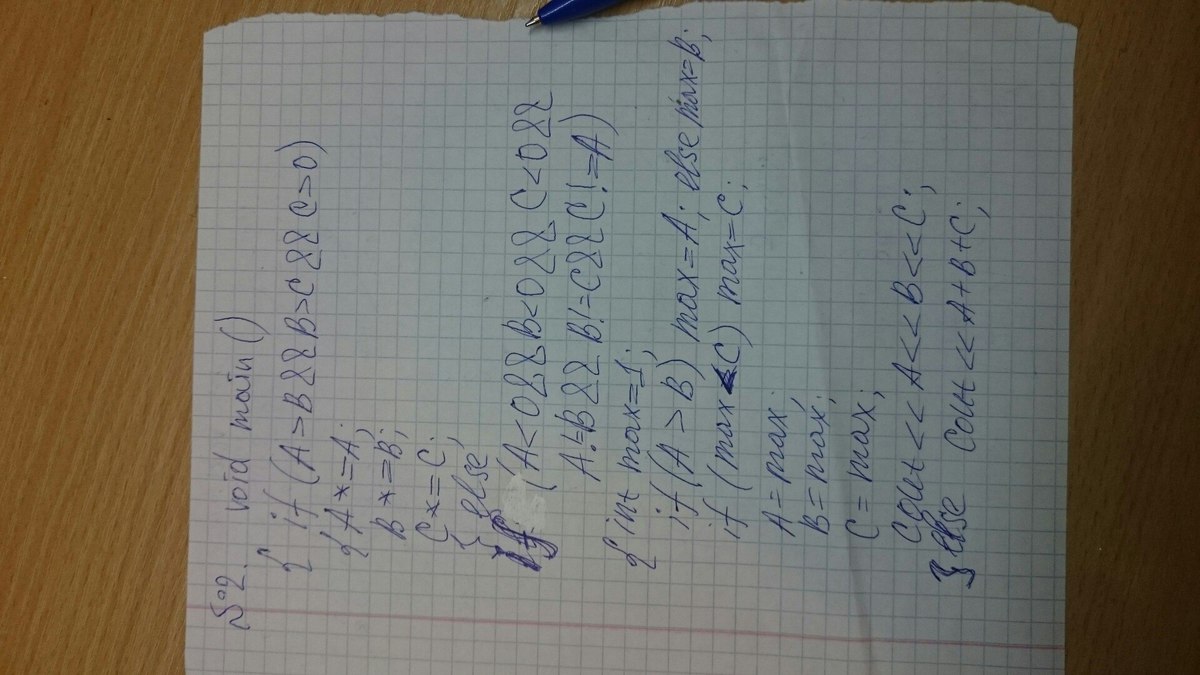 №2. void main()
{ if (A>B && B>C && C>0)
{ A*=A;
B*=B;
C*=C;
} else;
if (A<0 && B<0 && C<0 &&
A!=B && B!=C && C!=A)
{ int max=1;
if (A>B) max=A; else max=B;
if (max<C) max=C;
A=max;
B=max;
C=max;
cout<<A<<B<<C;
} else cout<<A+B+C;